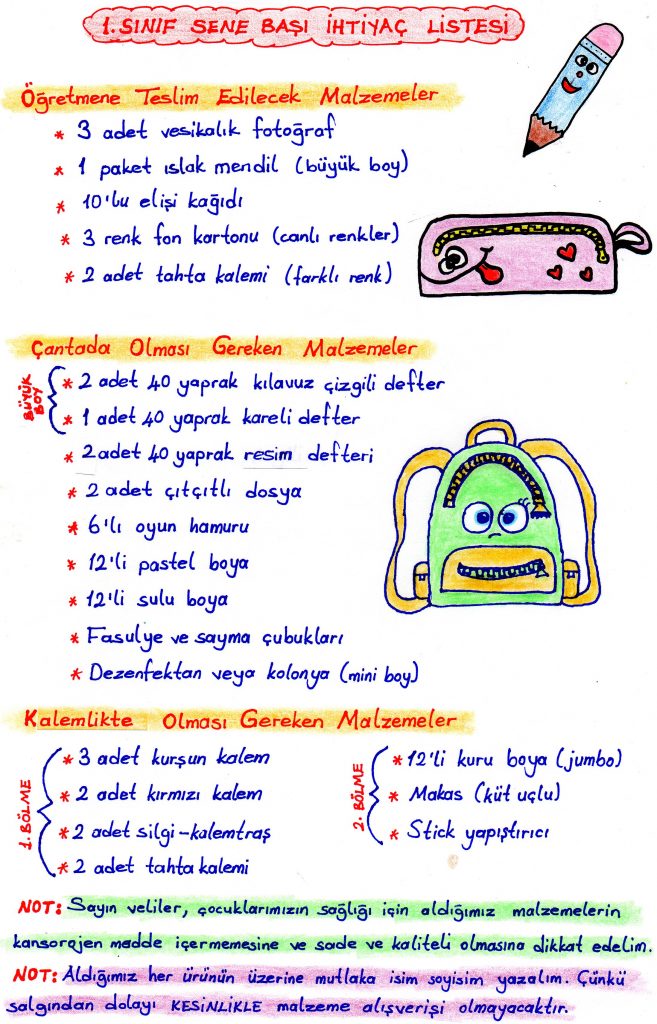 1. SINIF SENE BAŞI İHTİYAÇ LİSTESİ
Öğretmene Teslim Edilecek Malzemeler
* 3 adet vesikalık fotoğraf
* 1 paket ıslak mendil (büyük boy)
* 10'lu elişi kağıdı
* 3 renk fon kartonu (canlı renkler)
* 2 adet tahta kalemi (farklı renk)
Çantada Olması Gereken Malzemeler
BÜYÜK BOY
* 2 adet 40 yaprak kılavuz çizgili defter
* 1 adet 40 yaprak kareli defter
* 2 adet 40 yaprak resim defteri
* 2 adet çıtçıtlı dosya
* 6'lı oyun hamuru
* 12'li pastel boya
* 12'li sulu boya
* Fasulye ve sayma çubukları
* Dezenfektan veya kolonya (mini boy)
Kalemlikte Olması Gereken Malzemeler
1. BÖLME
* 3 adet kurşun kalem
* 2 adet kırmızı kalem
* 2 adet silgi-kalemtraş
* 2 adet tahta kalemi
2. BÖLME
* 12'li kuru boya (jumbo)
* Makas (küt uçlu)
* Stick yapıştırıcı
NOT: Sayın veliler, çocuklarımızın sağlığı için aldığımız malzemelerin
kansorojen madde içermemesine ve sade ve kaliteli olmasına dikkat edelim.
NOT: Aldığımız her ürünün üzerine mutlaka isim soyisim yazalım. Çünkü
salgından dolayı KESİNLİKLE malzeme alışverişi olmayacaktır.